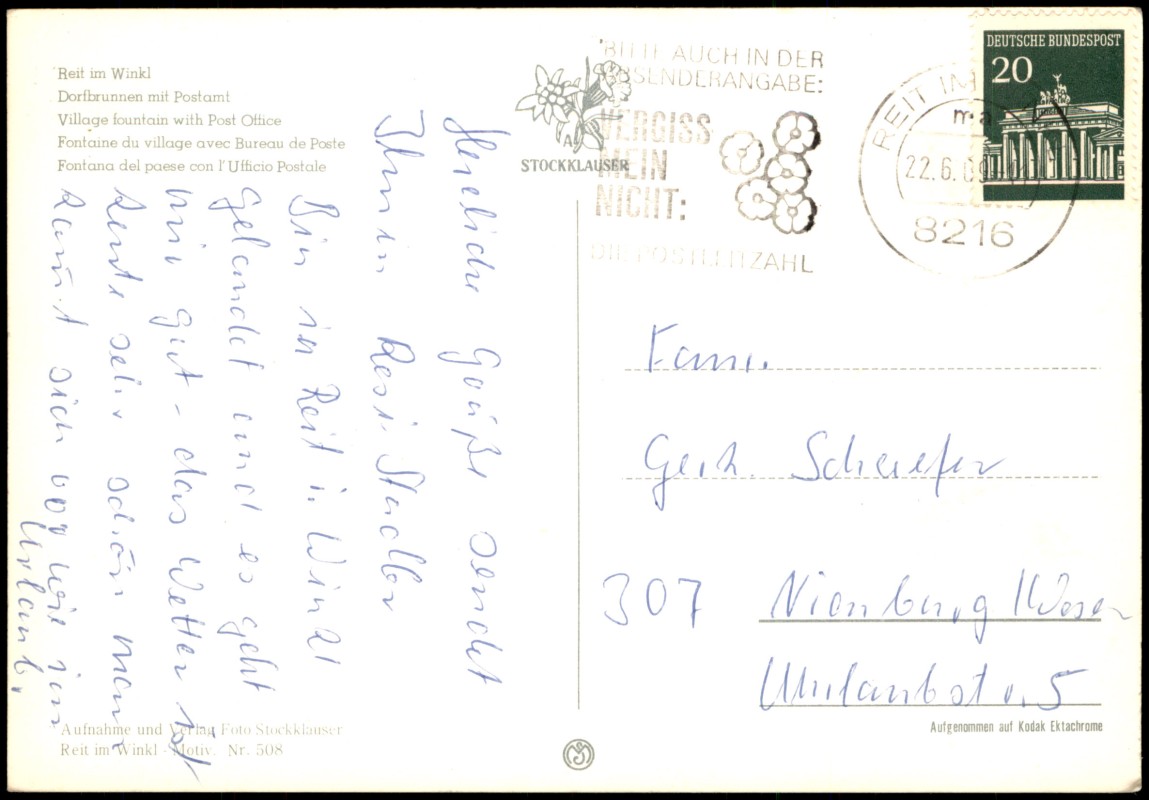 Reit im Winkl
Dorfbrunnen mit Postamt
Village fountain with Post Office
Fontaine du village avec Bureau de Poste
Fontana del paese con l'Ufficio Postale
STOCKKLAUSER
BITTE AUCH IN DER
ABSENDERANGABE:
VERGISS
MEIN
NICHT:
DIE POSTLEITZAHL
REIT IM
22.6.6
8216
DEUTSCHE BUNDESPOST
20
Herzliche Grüße sendet
Ihnen Resi Stadler
Bin in Reit i. Winkl
gelandet und es geht
mir gut - das Wetter ist
heute sehr schön man
kommt sich vor wie im
Urlaub.
Fam.
Gerh. Schaefer
307 Nienburg/Weser
Uhlandstr. 5
Aufnahme und Verlag Foto Stockklauser
Reit im Winkl - Motiv. Nr. 508
Aufgenommen auf Kodak Ektachrome